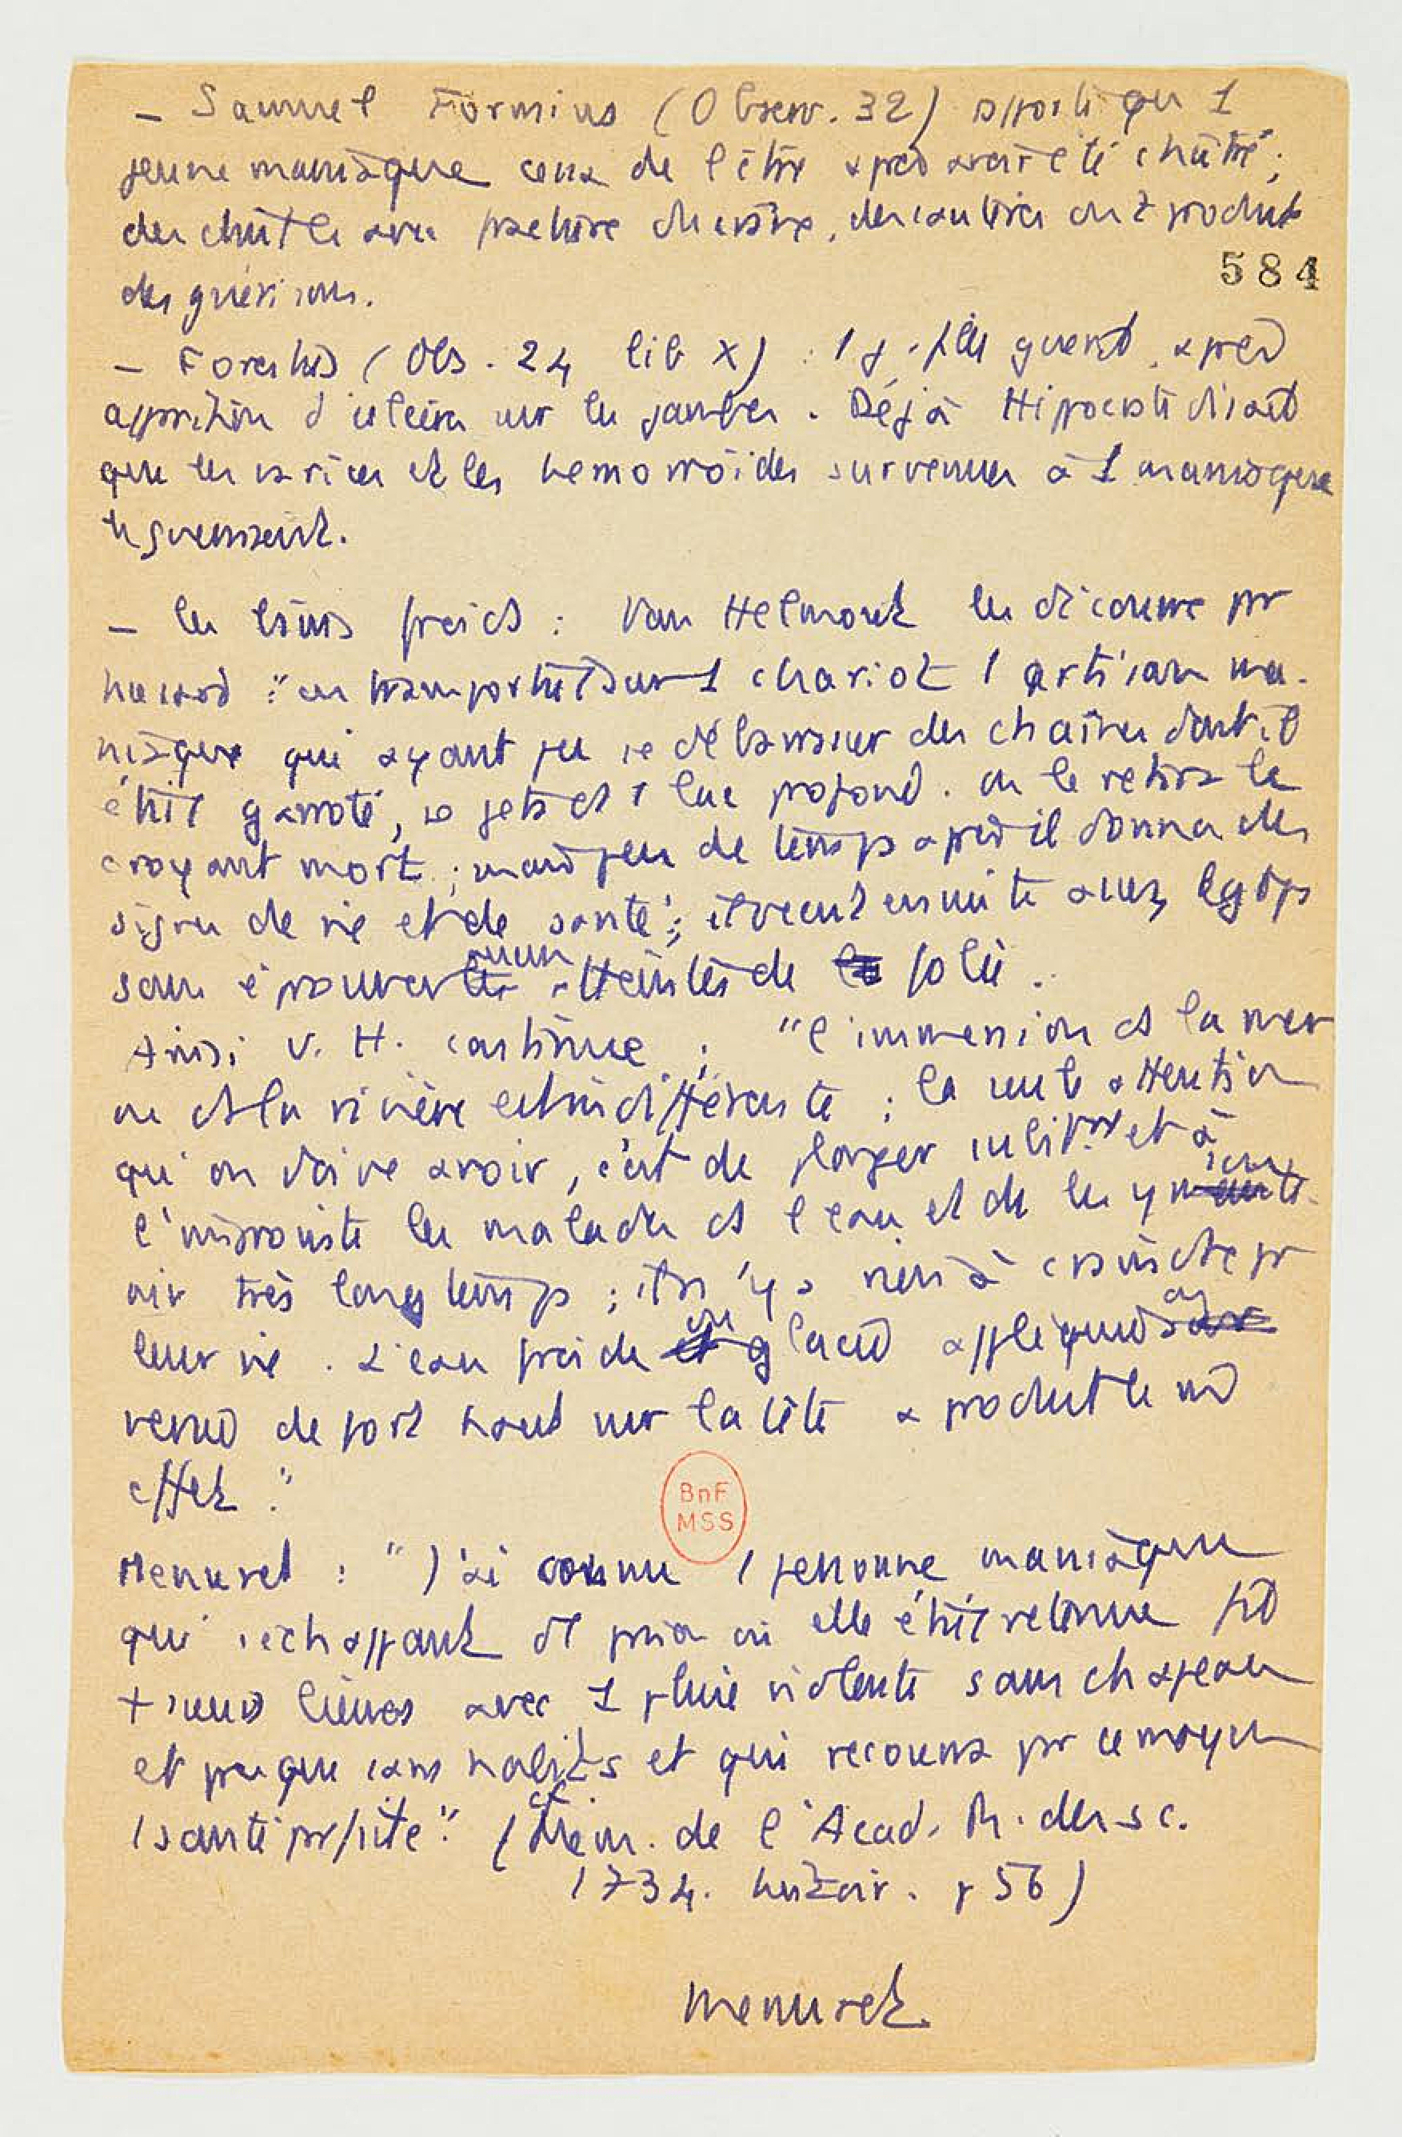 - Samuel Formius (Observ. 32) rapporte qu 1
jeune maniaque cessa de l'être après avoir été châtré;
des chutes avec fracture du crâne, des cautères ont produit
584
des guérisons.
- Forestus (Obs. 24 lib X) : 1 j. fille guérit, après
apparition d'ulcères sur les jambes. Déjà Hippocrate disait
que les varices et les hémorroïdes survenues à 1 maniaque
le guérissent.
- les bains froids : Van Helmont les découvre par
hasard : "on transportait sur 1 chariot 1 artisan ma-
niaque qui ayant pu se débarrasser des chaînes dont il
était garroté, se jeta ds 1 lac profond. on le retira le
croyant mort ; mais peu de temps après il donna des
signes de vie et de santé ; il vécut ensuite assez lgtps
sans éprouver aucunes atteintes de folie.
Ainsi V. H. continue : "l'immersion ds la mer
ou ds la rivière est indifférente ; la seule attention
qu'on doive avoir, c'est de plonger subitt et à
l'improviste les malades ds l'eau et de les y
nir très longtemps ; il n'y a rien à craindre pr
leur vie. L'eau froide ou glacée appliquée ou
versée de fort haut sur la tête a produit le m̂
effet."
Menuret : "J'ai connu 1 personne maniaque
qui s'échappant de prison où elle était retenue fit
+sieurs lieues avec 1 pluie violente sans chapeau
et presque sans habits et qui recouvra par ce moyen
1 santé parfaite." (cf Mem. de l'Acad. R. des sc.
1734. histoir. p 56)
Menuret
BnF
MSS